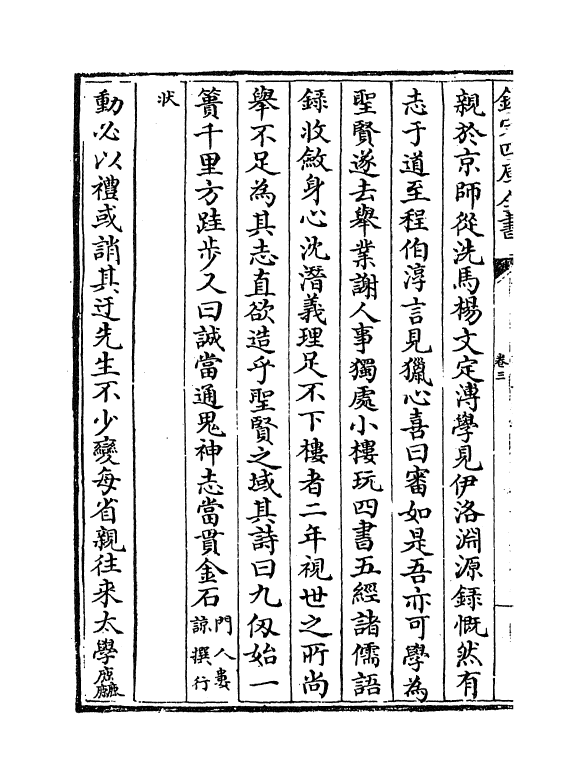 欽定四庫全書
卷三
親於京師從洗馬楊文定溥學見伊洛淵源録慨然有
志于道至程伯淳言見獵心喜曰審如是吾亦可學為
聖賢遂去舉業謝人事獨處小樓玩四書五經諸儒語
録收斂身心沈潛義理足不下樓者二年視世之所尚
舉不足為其志直欲造乎聖賢之域其詩曰九仭始一
簣千里方跬步又曰誠當通鬼神志當貫金石門人婁諒撰行
狀
動必以禮或誚其迂先生不少變每省親往来太學